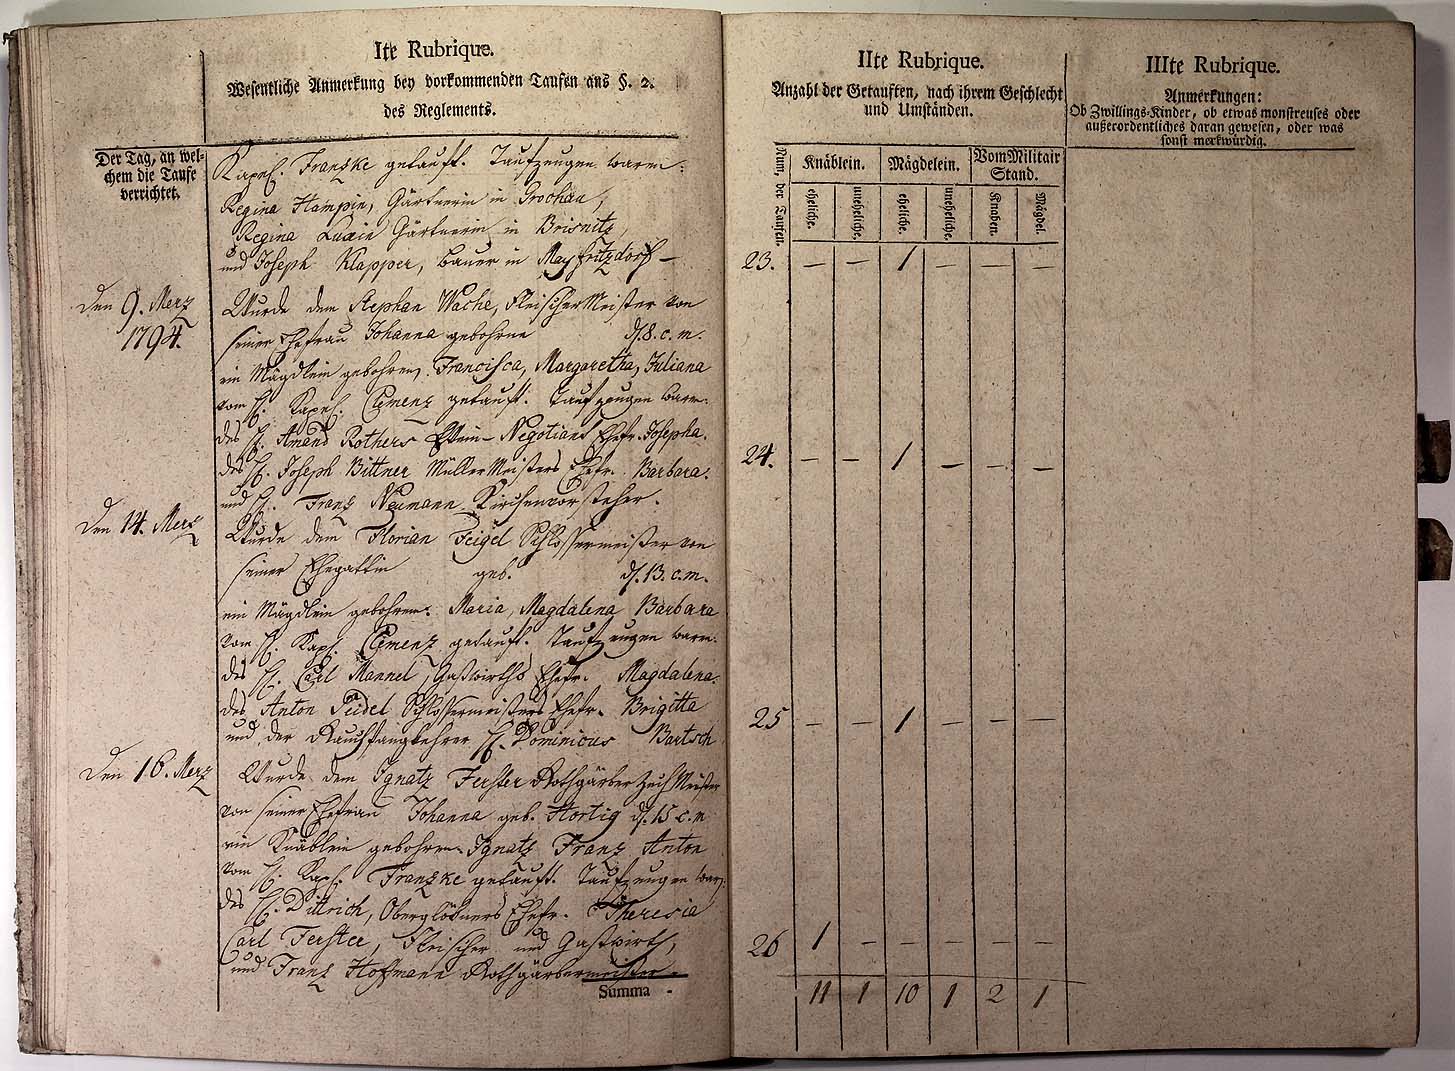 Ite Rubrique.
Wesentliche Anmerkung bey vorkommenden Taufen aus §. 2.
des Reglements.
Der Tag, an wel-
chem die Taufe
verrichtet.
Kapel. Franzke getauft. Taufzeugen warn:
Regina Hampin, Gärtnerin in Grochau,
Regina Luxin Gärtnerin in Brisnitz,
und Joseph Klapper, Bauer in Mayfritzdorf –
den 9. Merz
1794.
Wurde dem Stephan Wache, FleischerMeister von
seiner Ehefrau Johanna gebohrne d. 8. c. m.
ein Mägdlein gebohren, Francisca, Margaretha, Juliana
vom H. Kapel. Clemenz getauft. Taufzeugen warn.
des H. Amand Rothers Wein-Negotians Ehefr. Josepha.
des H. Joseph Bittner MüllerMeisters Ehefr. Barbara.
und H. Franz Neumann Kirchenvorsteher.
den 14. Merz
Wurde dem Florian Feigel Schlossermeister von
seiner Ehegattin geb. d. 13. c. m.
ein Mägdlein gebohren. Maria, Magdalena Barbara
vom H. Kapl. Clemenz getauft. Taufzeugen warn.
des H. Carl Mannel, Gastwirths Ehefr. Magdalena.
des Anton Seidel Schlossermeisters Ehefr. Brigitta
und der Rauchfangkehrer H. Dominicus Bartsch
den 16. Merz
Wurde dem Ignatz Ferster Rothgärber Zech Meister
von seiner Ehefrau Johanna geb. Hortig d. 15 c. m
ein Knäblein gebohren Ignatz Franz Anton
vom H. Kapl. Franzke getauft. Taufzeugen war.
des H. Dittrich, Oberglöckners Ehefr. Theresia
Carl Ferster, Fleischer und Gastwirth,
und Franz Hofmann Rothgärbermeister.
Summa -
IIte Rubrique.
Anzahl der Getauften, nach ihrem Geschlecht
und Umständen.
Num. der Taufen.
Knäblein. Mägdelein. Vom Militair
Stand.
eheliche. uneheliche. eheliche. uneheliche. Knaben. Mägdel.
23. – – 1 – – –
24. – – 1 – – –
25 – – 1 – – –
26 1 – – – – –
11 1 10 1 2 1
IIIte Rubrique.
Anmerkungen:
Ob Zwillings-Kinder, ob etwas monstreuses oder
außerordentliches daran gewesen, oder was
sonst merkwürdig.